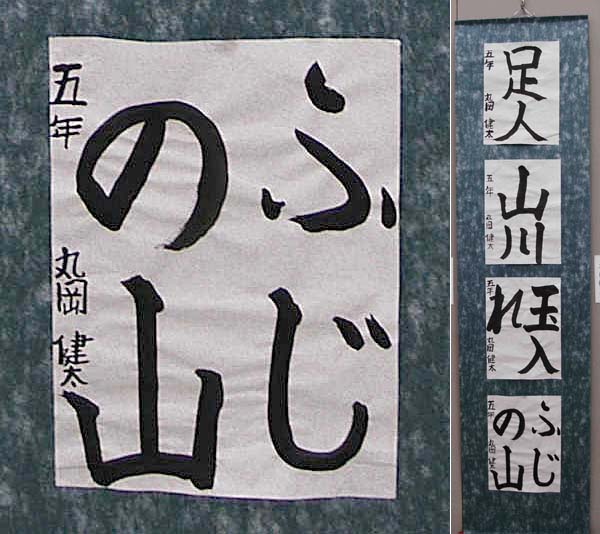 ふじ
の山
五年 丸岡 健太
足人
五年 丸岡 健太
山川
五年 丸岡 健太
玉入
れ
五年 丸岡 健太
ふじ
の山
五年 丸岡 健太